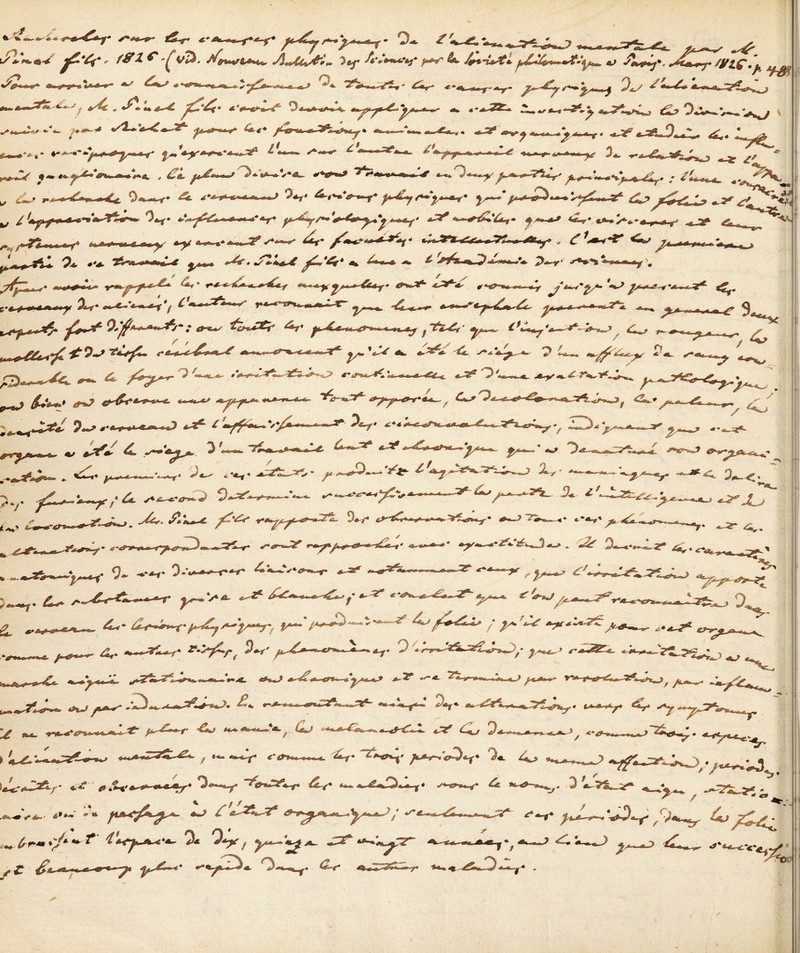 Recherches sur les causes physiques de l'aliénation mentale par M.
Pinel fils. 1826. (vid. Nouveau Bulletin des Sciences par la Société philomatique de Paris. Mars 1826. p. 48)
Pour arriver à la connaissance de toutes les causes physiques de l'aliénation
mentale, M. Pinel fils croit devoir appliquer à cette investigation la division
suivie par Bichat pour les fonctions animales et organiques et étudier les influ-
ences réciproques qu'exercent l'un sur l'autre l'appareil nerveux de relation et l'appa-
reil ganglionaire. Il a donc divisé son travail en deux parties principales: l'une consacrée
à la recherche dans le cerveau des lésions physiques qui produisent la folie et l'autre
à l'appréciation des influences physiologiques et mobiles que les viscères et leurs
systèmes nerveux exercent sur les facultés intellectuelles. C'est la première
partie de ce travail que M. Pinel fils a lue à l'Académie des sciences.
Après avoir rappelé les recherches auxquelles ont été soumis jusqu'à présent les
cerveaux des aliénés, l'auteur reconnait que leur encéphale présente en général deux
aspects fort différents: ou toute les phénomènes, tels que l'injection, la rougeur, la
mollesse du tissu cérébral annoncent qu'il a été le siége d'un afflux de sang con-
sidérable ou le foyer d'une irritation continuelle et d'une exaltation pathologique;
ou bien on observe une apparence tout opposée, la décoloration, la paleur, la
densité du cerveau et l'affaissement des circonvolutions, indiquent que cet
organe a été le siége d'un travail lent et chronique qui a dénaturé son organi-
sation. Le premier de ces états produit l'agitation des maniaques et le délire
des furieux; le second détermine successivement la perte de l'intelligence et de
la locomotion. Mr. Pinel fils rapporte des observations où tous ces phénomènes et les
altérations correspondantes sont rapprochés avec exactitude. Il décrit les caractères
anatomiques de ces diverses liaisons et notamment ceux, que l'irritation apporte
dans les substances grise et blanche; et conclut que l'on peut reconnaitre dans
le cerveau les lésions physiques, qui produisent la folie; qu'il existe pour cet organe
comme pour les autres tissus, des phénomènes d'irritation; que cette irritation a une
marche aiguë stationnaire ou chronique et se termine par résolution, par inflam-
mation ou par induration. En remontant ainsi des altérations vers les symptomes
il ne reconnait plus la manie, la mélancolie et la démence, comme trois espèces
d'aliénation mentale, mais comme les trois périodes de la meme affection; périodes
décrites et observées dans toutes les maladies sous le noms d'état aigu, statio-
naire ou de passage à l'état organique; seulement ces périodes, dans la folie
embrassent l'espace de dix, quinze et vingt années, au lieu que leur succession
est beaucoup plus rapide dans les autres maladies.